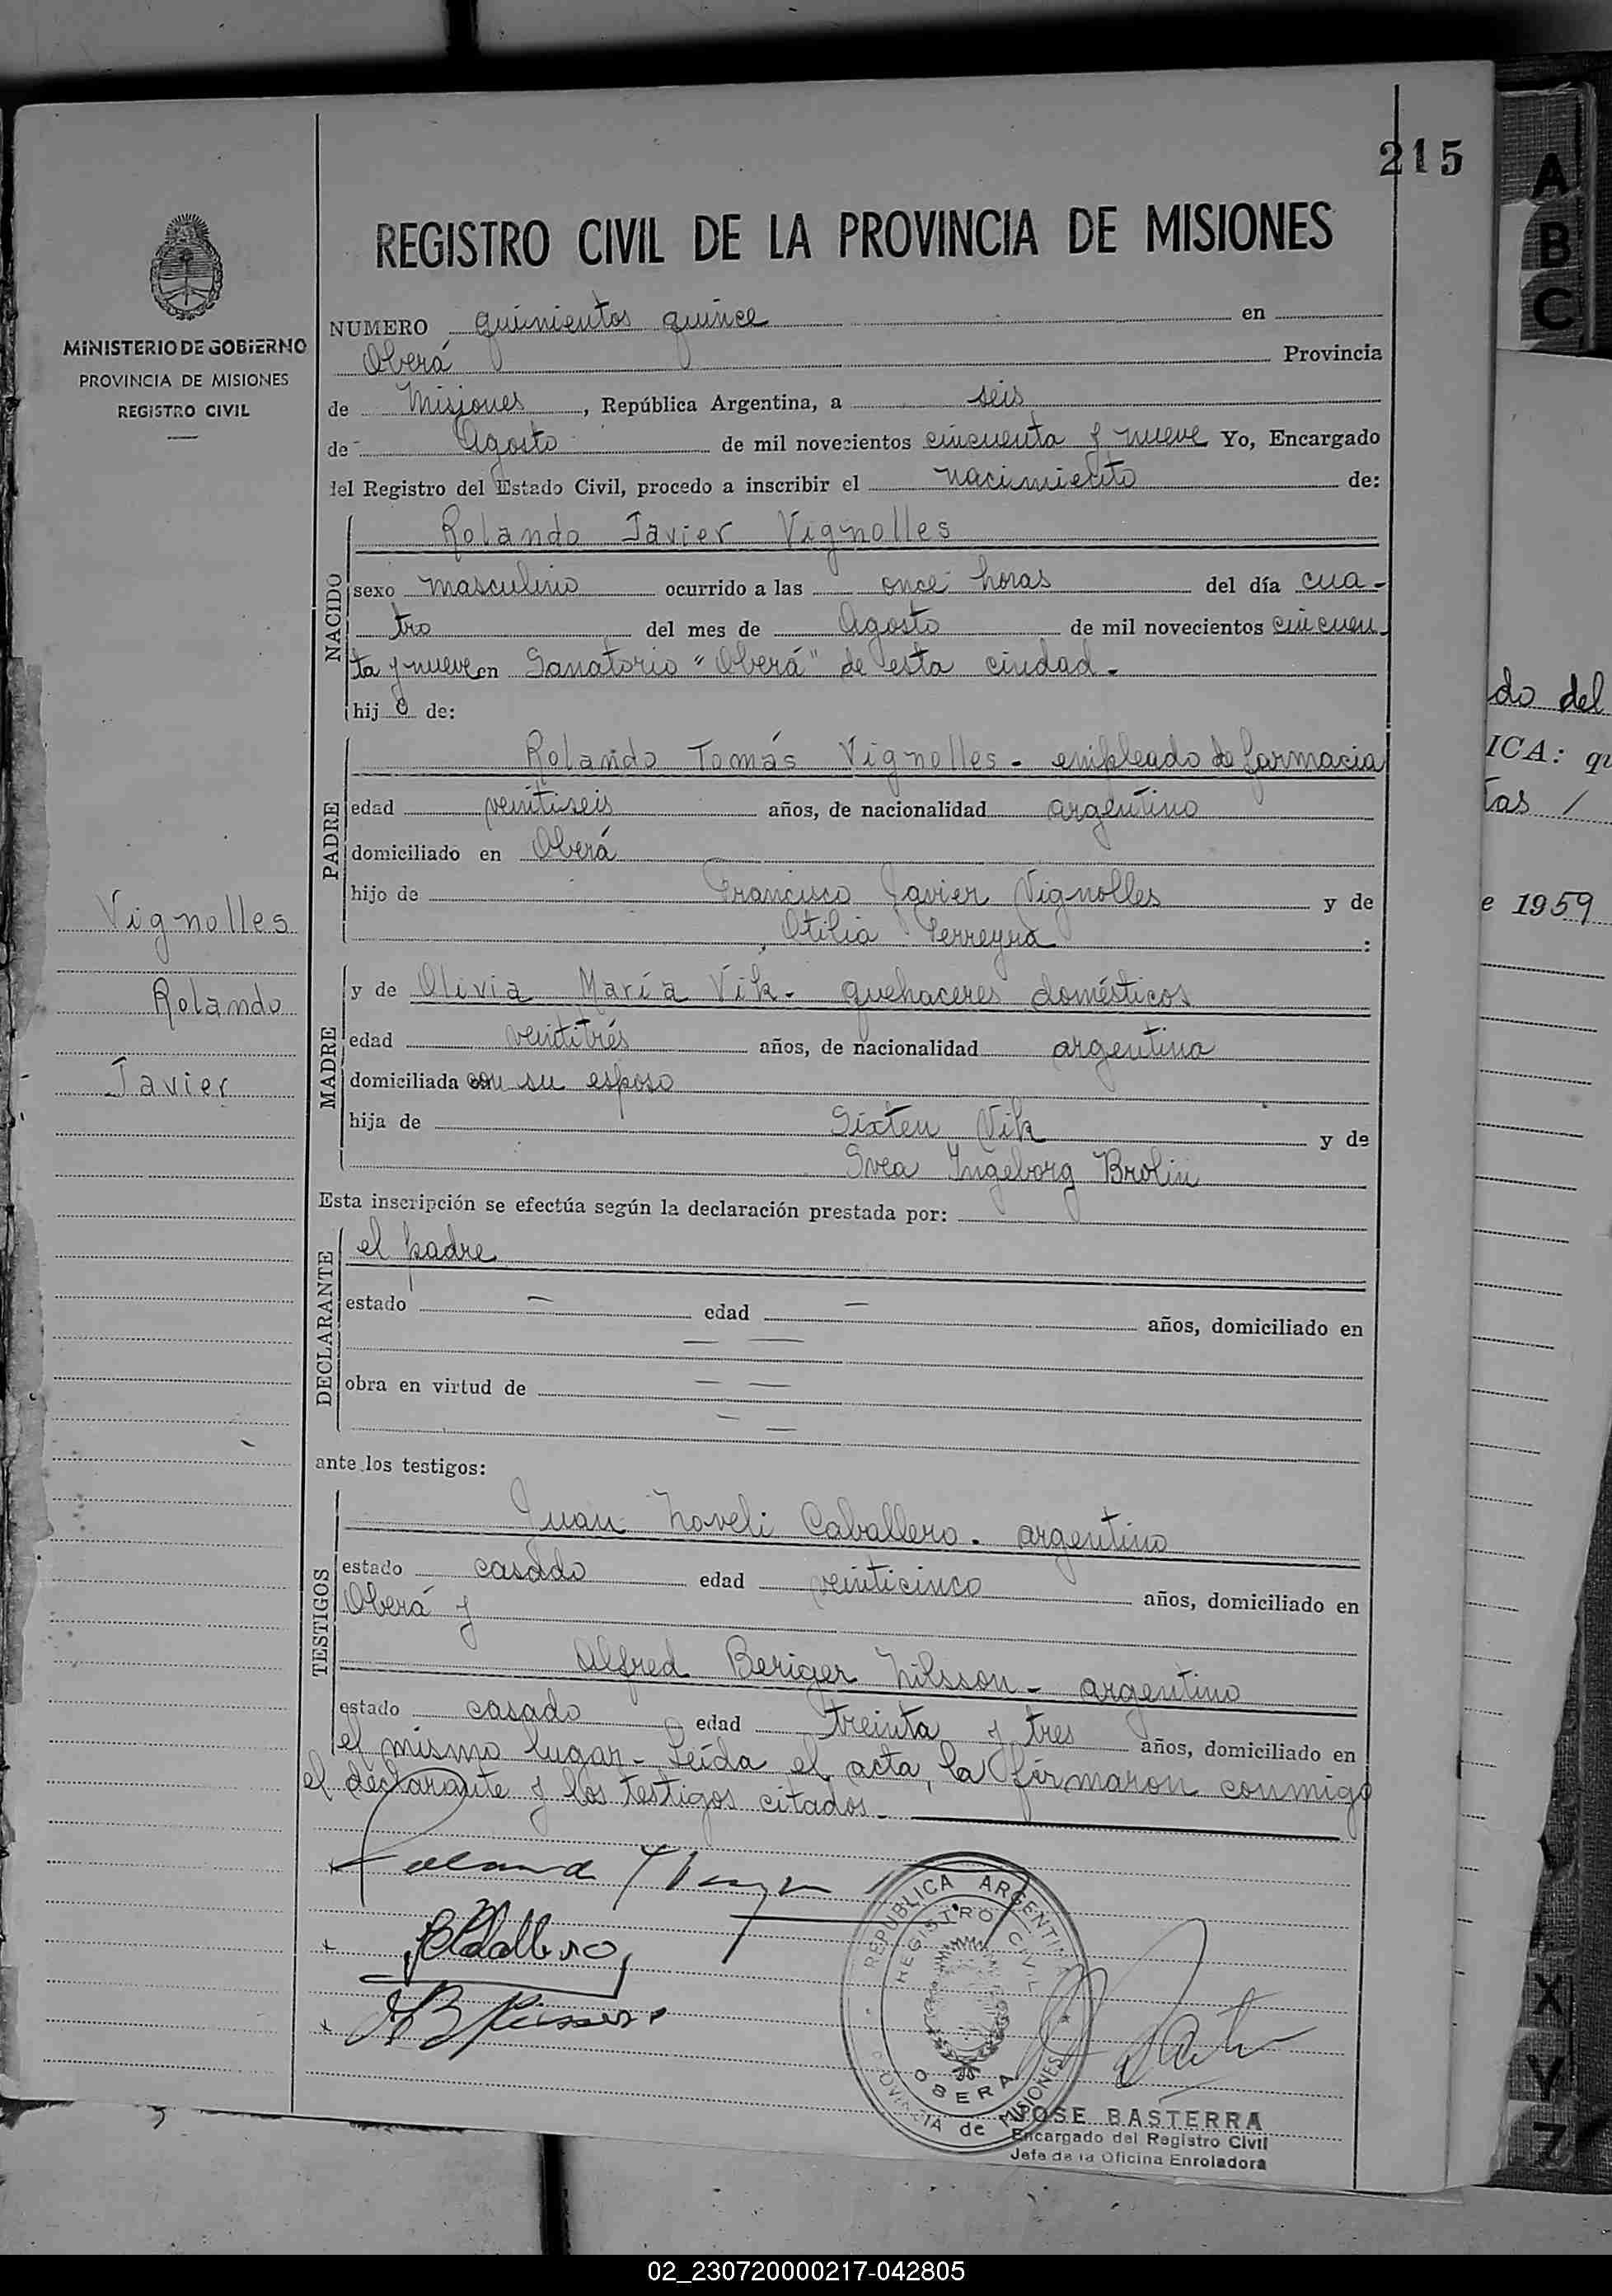 215
REGISTRO CIVIL DE LA PROVINCIA DE MISIONES
MINISTERIO DE GOBIERNO
PROVINCIA DE MISIONES
REGISTRO CIVIL
NUMERO quinientos quince en
Oberá Provincia
de Misiones, República Argentina, a seis
de Agosto de mil novecientos cincuenta y nueve Yo, Encargado
del Registro del Estado Civil, procedo a inscribir el nacimiento de:
NACIDO
Rolando Javier Vignolles
sexo masculino ocurrido a las once horas del día cua-
tro del mes de Agosto de mil novecientos cincuen-
ta y nueve en Sanatorio "Oberá" de esta ciudad.-
hijo de:
PADRE
Rolando Tomás Vignolles - empleado de farmacia
edad veintiseis años, de nacionalidad argentino
domiciliado en Oberá
hijo de Francisco Javier Vignolles y de
Otilia Ferreyra :
Vignolles
Rolando
Javier
MADRE
y de Olivia María Vik - quehaceres domésticos
edad veintitrés años, de nacionalidad argentina
domiciliada con su esposo
hija de Sixten Vik y de
Svea Ingeborg Brolin
Esta inscripción se efectúa según la declaración prestada por:
DECLARANTE
el padre
estado — edad — años, domiciliado en
— —
obra en virtud de — —
— —
ante los testigos:
TESTIGOS
Juan Noveli Caballero - argentino
estado casado edad veinticinco años, domiciliado en
Oberá y
Alfred Beriger Nilsson - argentino
estado casado edad treinta y tres años, domiciliado en
el mismo lugar - Leída el acta, la firmaron conmigo
el declarante y los testigos citados.-
REPUBLICA ARGENTINA
REGISTRO CIVIL
OBERA
PROVINCIA de MISIONES
JOSE BASTERRA
Encargado del Registro Civil
Jefe de la Oficina Enroladora
do del
ICA: qu
tas /
e 1959
A
B
C
X
Y
Z
02_230720000217-042805